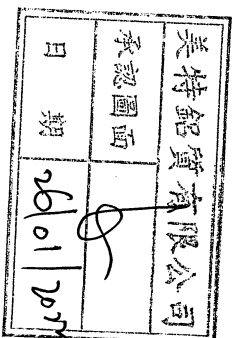 美特鋁質有限公司
承認圖面
日 期 26/01/207